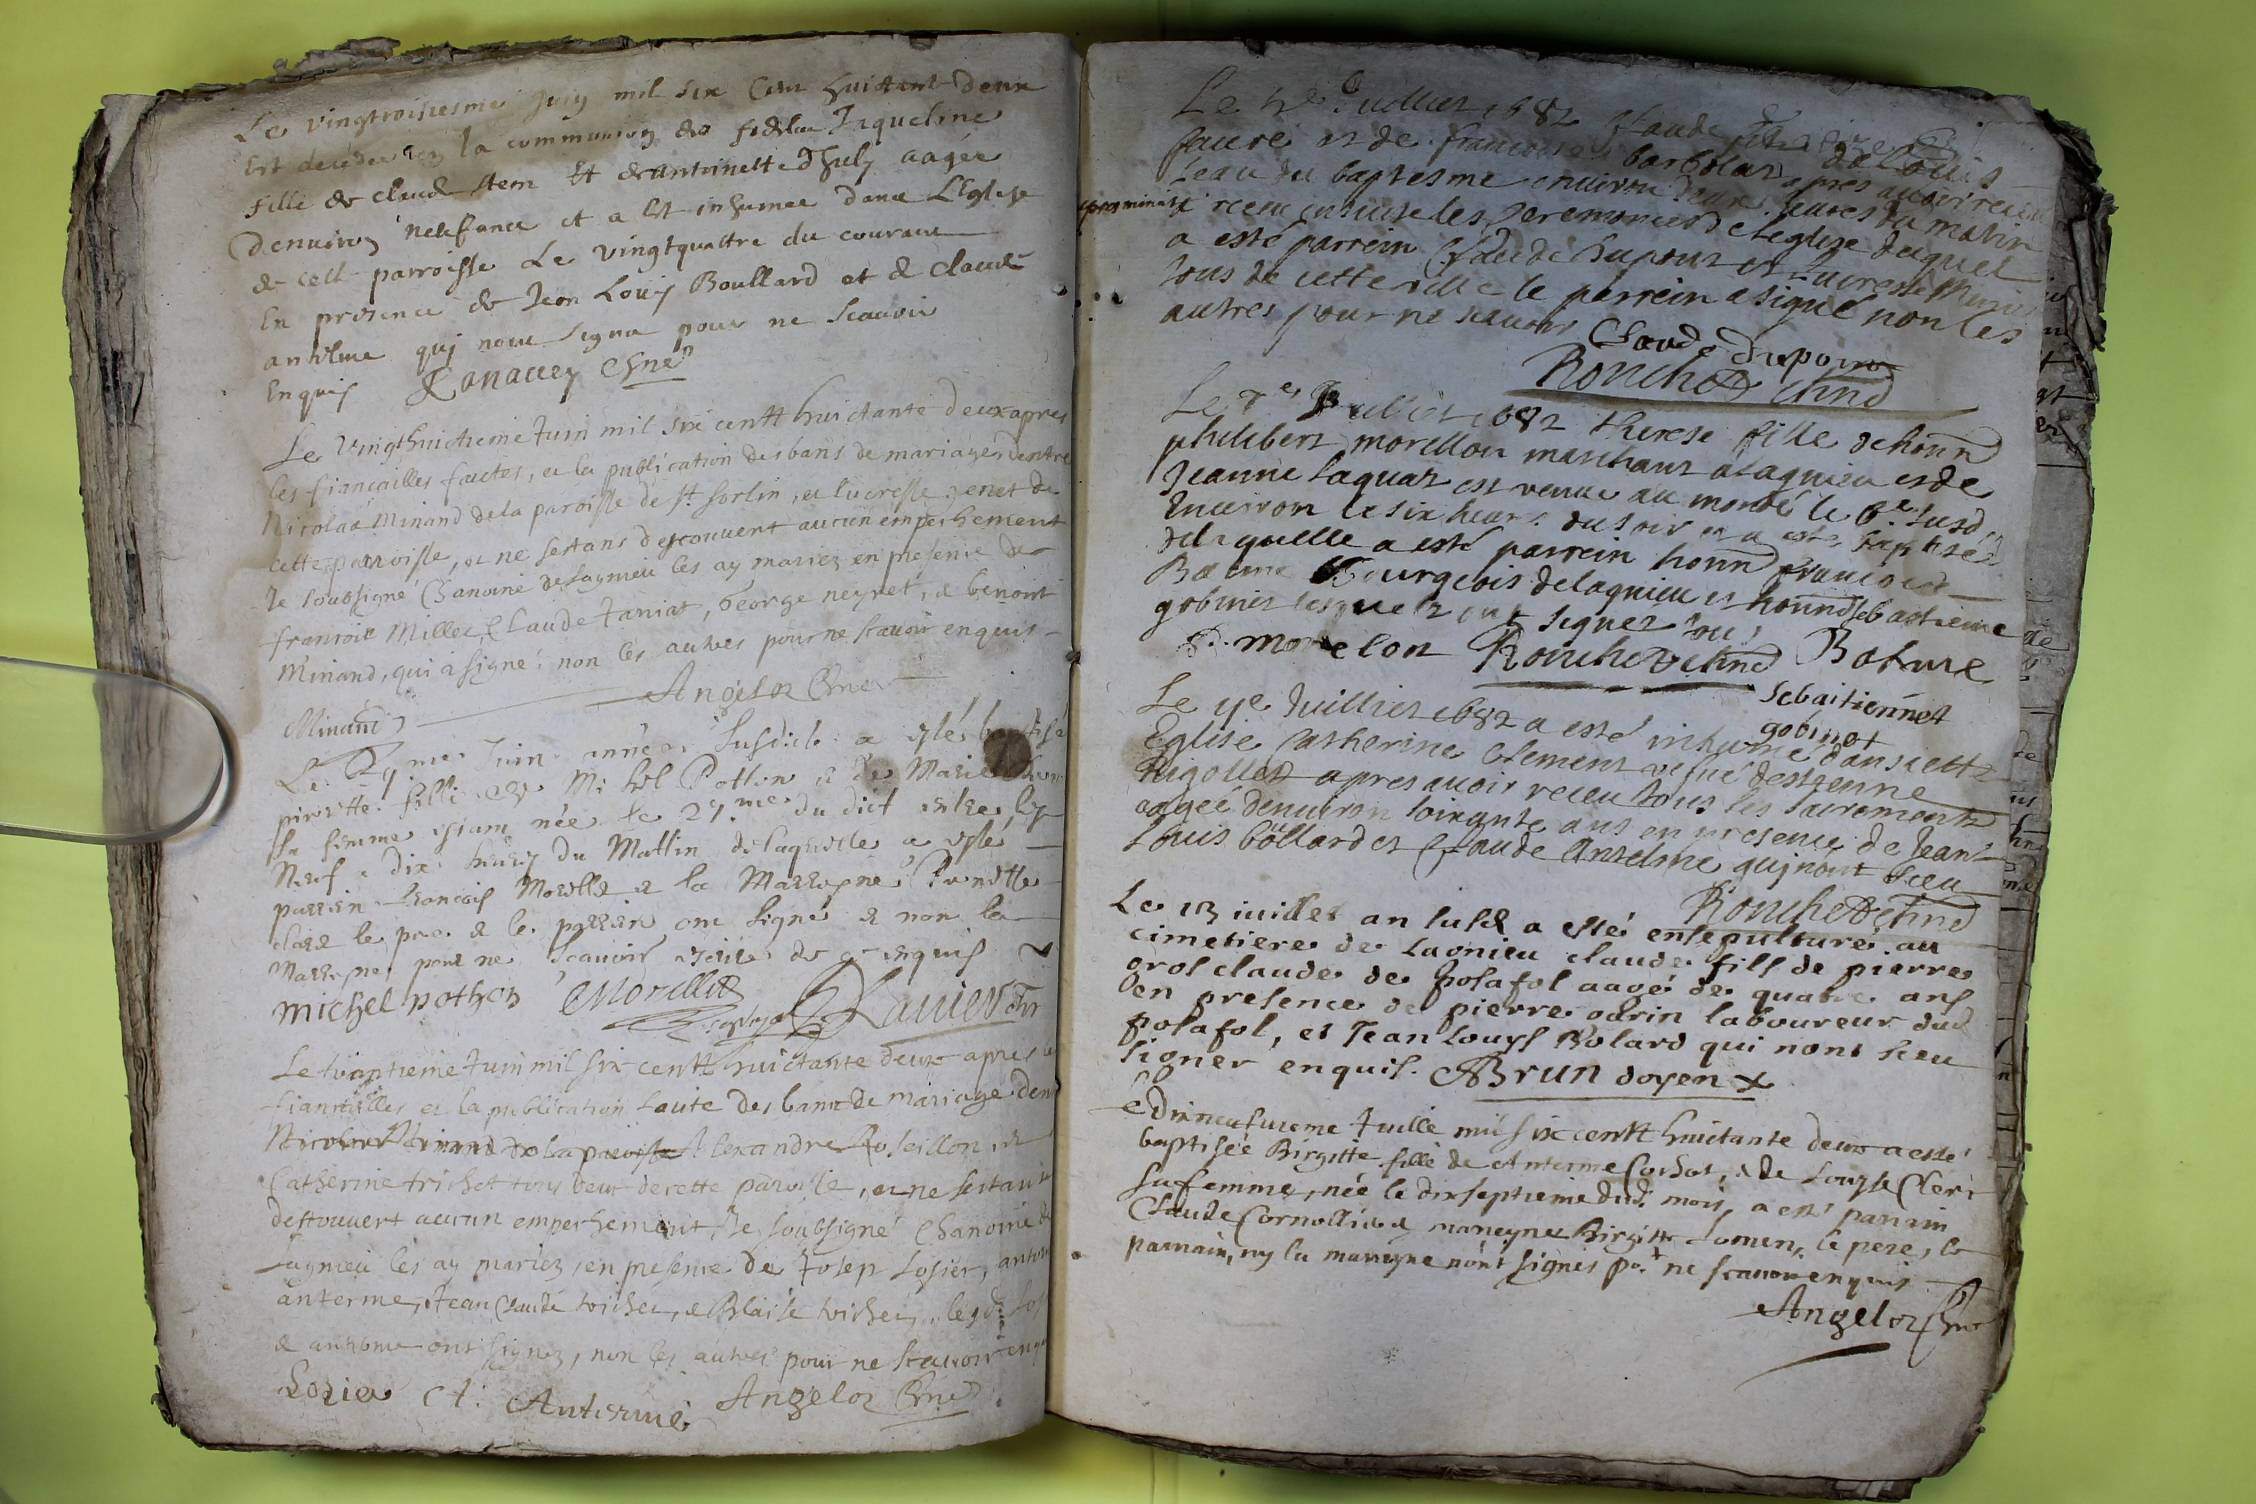 Le vingtroisiesme Juin mil six Cent huictant deux
Est decedee en la communion des fideles Jaqueline
fille de claude stern Et de antoinette Thuly aagée
denuiron et a Est inhumee dans L'Eglise
de cette parroisse Le vingtquattre du courant
En presence de Jean Louis Boullard et de claude
antelme qui nont signé pour ne Scauoir
Enquis Ranauey Chne
Le vingthuictieme Juin mil six centz huictante deux apres
les fiançailles faictes, et la publication des bans de mariages dentre
Nicolas Minand de la paroisse de st. sorlin, et lucresse genet de
cette paroisse, et ne sestans descouvert aucun empeschement
Je soubsigné Chanoine de Lagnieu les ay mariez en presence de
francois Millet, Claude Janiat, George neyret, et benoist
Minand, qui à signé; non les autres pour ne scauoir enquis
Angeloz Chne
Minand
Le 29me Juin année susdicte a esté baptisé
pierrette fille de Michel Potton et de Marie
sa femme née le 27.me du dict entre les
Neuf a dix heures du Mattin de laquelle a esté
parrin francois Morellet et la Marrayne Pernette
claire le pere et le parrein ont signé et non la
Marrayne pour ne scauoir escrire de ce enquis
michel pothon Morillet
Lauier Chr
Le trantieme Juin mil six centz huictante deux apres les
fiançailles et la publication faite des bans de mariage dentre
Nicolas Minand de la paroisse Alexandre Roseillon, et
Catherine trichet tous deux de cette paroisse, et ne sestant
descouvert aucun empeschement, Je soubsigné Chanoine de
Lagnieu les ay mariez, en presence de Josept Losier, antoine
anterme, Jean Claude trichet, et Blaise trichet, lesqds Losier
& antherme ont signez, non les autres pour ne scauoir enquis
Lozier A. Anterme Angeloz Chne
Le Juillet 1682 Claude fils de Louis
faure et de francoise barbolat apres auoir receu
l'eau du baptesme enuiron deux heures du matin
a receu ensuite les Ceremonies de leglise duquel
a esté parrein Claude Dupont et Lucresse
tous de cette ville le parrein a signé non les
autres pour ne scauoir Claude Dupont
Ronchet Chne
Le 7e Juillet 1682 therese fille de honn
philibert morellon marchant a Lagnieu et de
Jeanne Laquas est venue au monde le 6e susd
Enuiron les six heures du soir et a esté baptisée
de laquelle a esté parrein honn francois
Bourgeois de lagnieu et honn sebastienne
gobinet lesquelz ont signez
P. morelon Ronchet Chne Bofaure
sebaitiennet
gobinot
Le 9e Juilliet 1682 a esté inhumé dans cette
Eglise Catherine Clement vefue destienne
Rigollet apres auoir receu tous les sacrements
aagée denuiron soixante ans en presence de Jean
Louis boullard et Claude Antelme qui nont sceu
Ronchet Chne
Le 13 iuillet an susd a esté ensepulturé au
cimetiere de Lagnieu claude fils de pierre
gros claude de posafol aagé de quatre ans
en presence de pierre odrin laboureur dud
posafol, et Jean Louys Bolard qui nont sceu
signer enquis. Brun doyen
Le Dixneufuieme Juille mil six centz huictante deux a esté
baptisée Birgitte fille de Anterme Cochot, & de Louyse Clerc
sa femme, née le dixseptieme dud. mois, a esté parrain
Claude Cornollier & mareyne Birgitte Lomen, le pere, le
parrain, ny la mareyne n'ont signés pr. ne scauoir enquis
Angeloz Chne